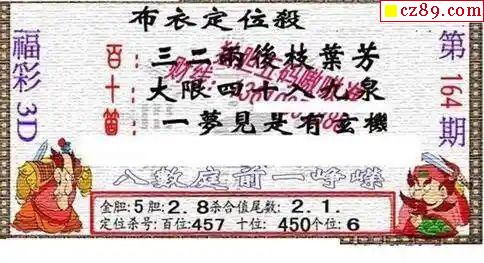 cz89.com
布衣定位殺
福彩3D
第164期
百: 三二雨後枝葉芳
十: 大限四十入九泉
個: 一夢見是有玄機
八數庭前一崢嶸
金胆:5胆:2.8杀合值尾数:2.1.
定位杀号:百位:457 十位:450个位:6